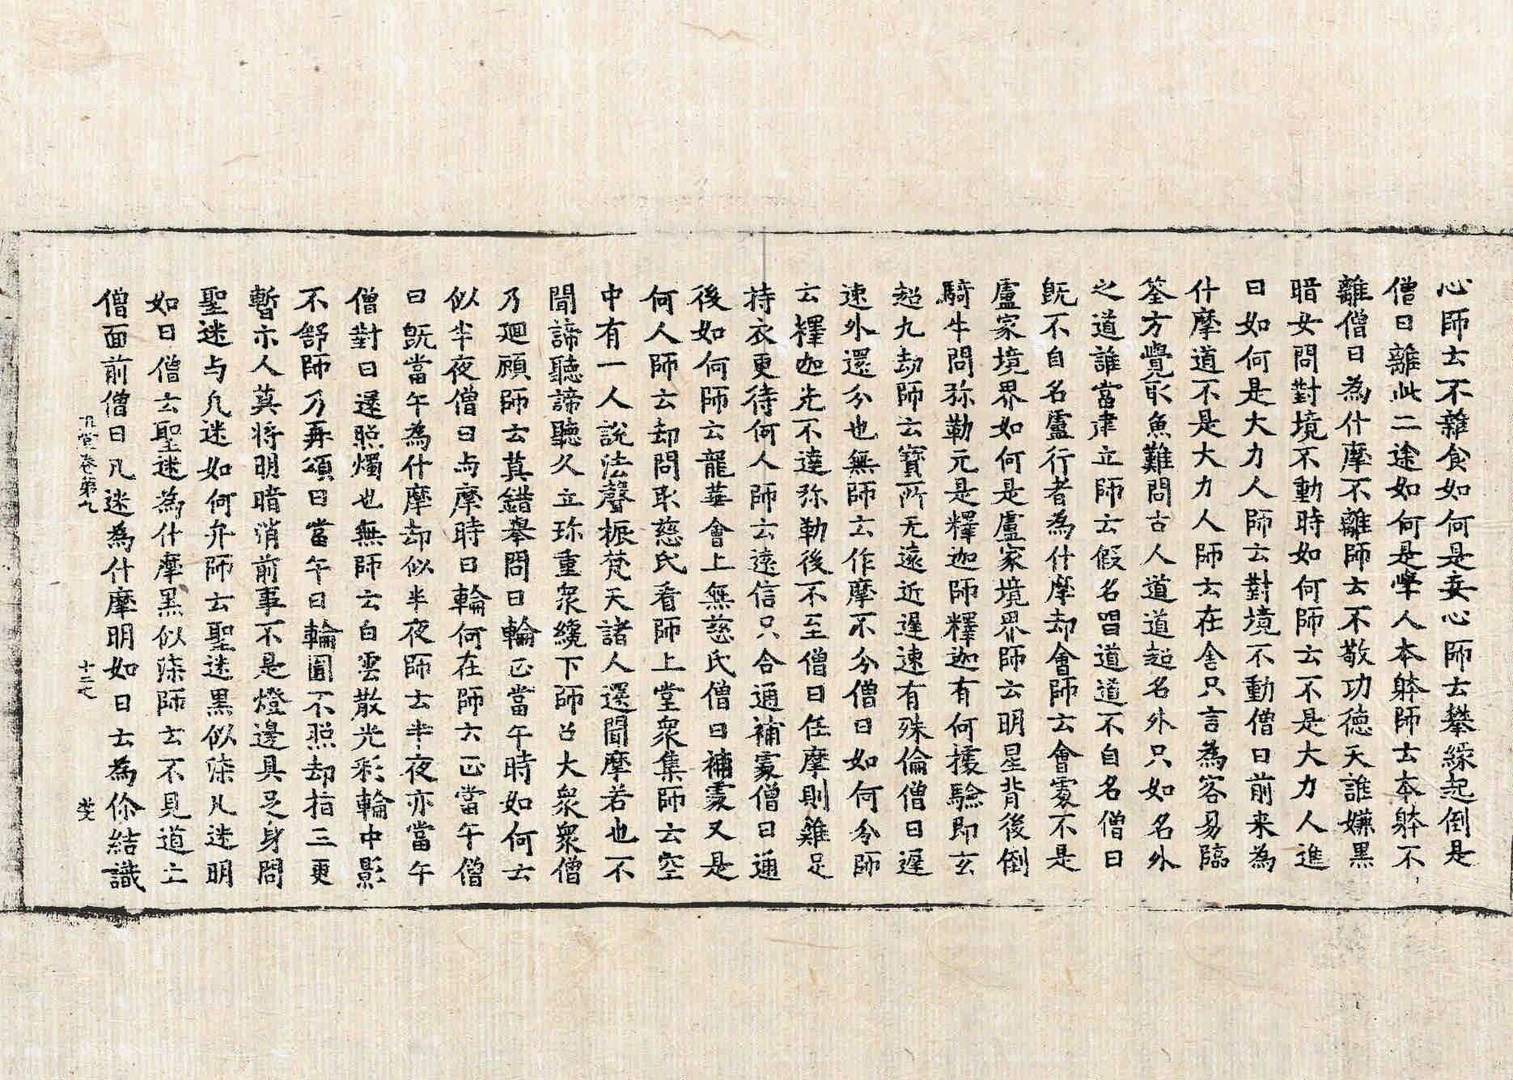 心師云不雜食如何是妄心師云攀緣起倒是
僧曰離此二途如何是學人本躰師云本躰不
離僧曰為什摩不離師云不敬功德天誰嫌黑
暗女問對境不動時如何師云不是大力人進
曰如何是大力人師云對境不動僧曰前来為
什摩道不是大力人師云在舍只言為客易臨
筌方覺取魚難問古人道道超名外只如名外
之道誰當建立師云假名唱道道不自名僧曰
旣不自名盧行者為什摩却會師云會處不是
盧家境界如何是盧家境界師云明星背後倒
騎牛問弥勒元是釋迦師釋迦有何據驗即玄
超九劫師云寶所无遠近遲速有殊倫僧曰遲
速外還分也無師云作摩不分僧曰如何分師
云釋迦先不達弥勒後不至僧曰任摩則雞足
持衣更待何人師云遠信只合通補處僧曰通
後如何師云龍華會上無慈氏僧曰補處又是
何人師云却問取慈氏看師上堂衆集師云空
中有一人說法聲振梵天諸人還聞摩若也不
聞諦聽諦聽久立珎重衆纔下師召大衆衆僧
乃廻顧師云莫錯舉問日輪正當午時如何云
似半夜僧曰与摩時日輪何在師云正當午僧
曰旣當午為什摩却似半夜師云半夜亦當午
僧對曰還照燭也無師云白雲散光彩輪中影
不舒師乃再頌曰當午日輪圓不照却指三更
暫示人莫将明暗消前事不是燈邊具足身問
聖迷与凡迷如何弁師云聖迷黑似漆凡迷明
如日僧云聖迷為什摩黑似漆師云不見道上
僧面前僧曰凡迷為什摩明如日士為你結識
祖堂卷第九 十二丈